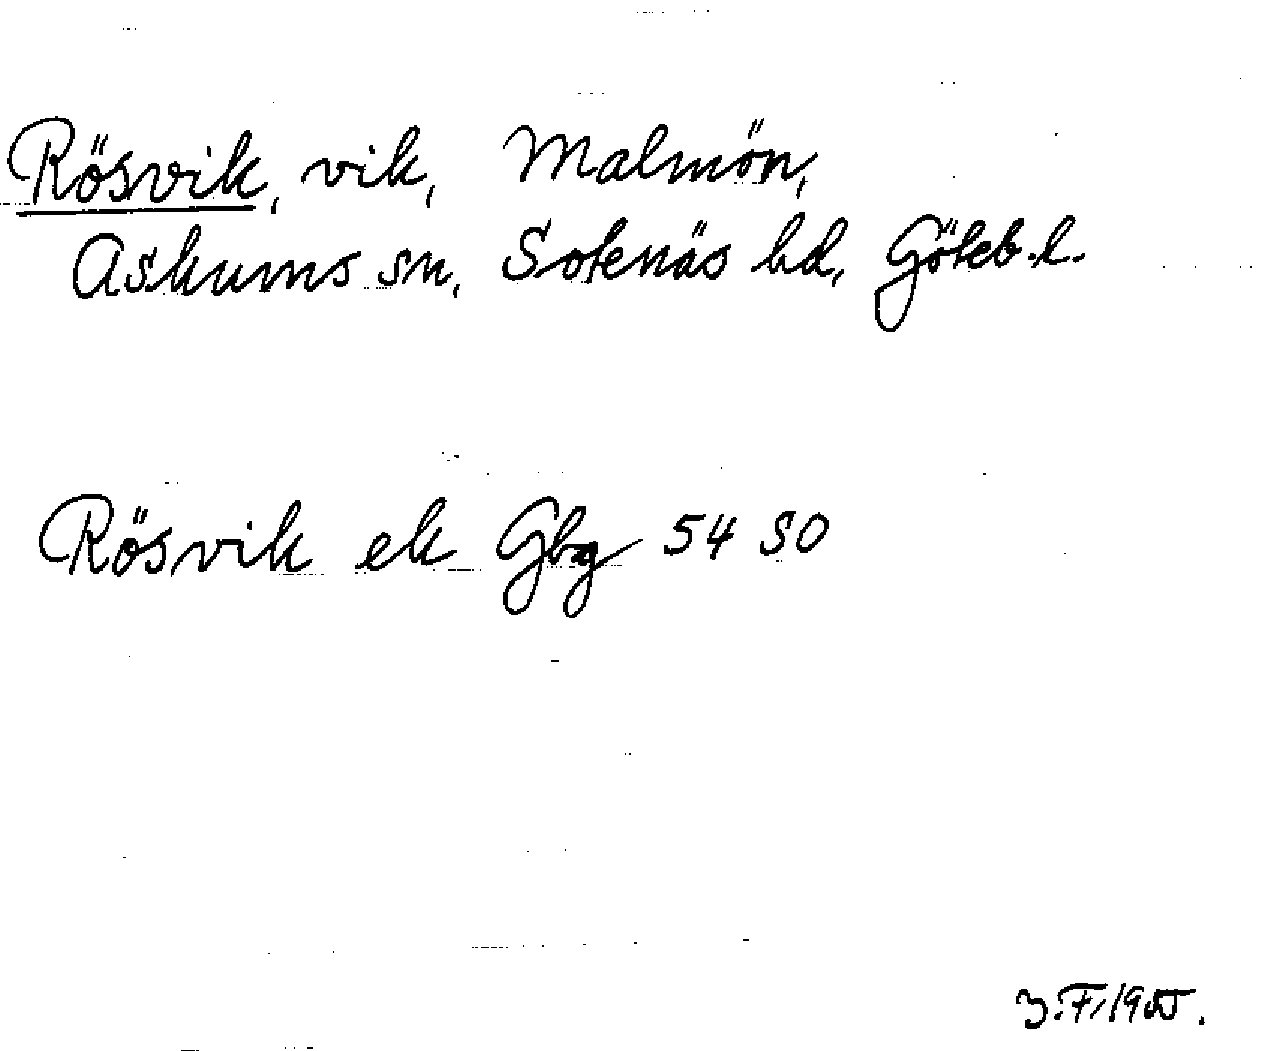 Rösvik, vik, Malmön,
Askums sn, Sotenäs hd, Göteb. l.
Rösvik ek Gbg 54 SO